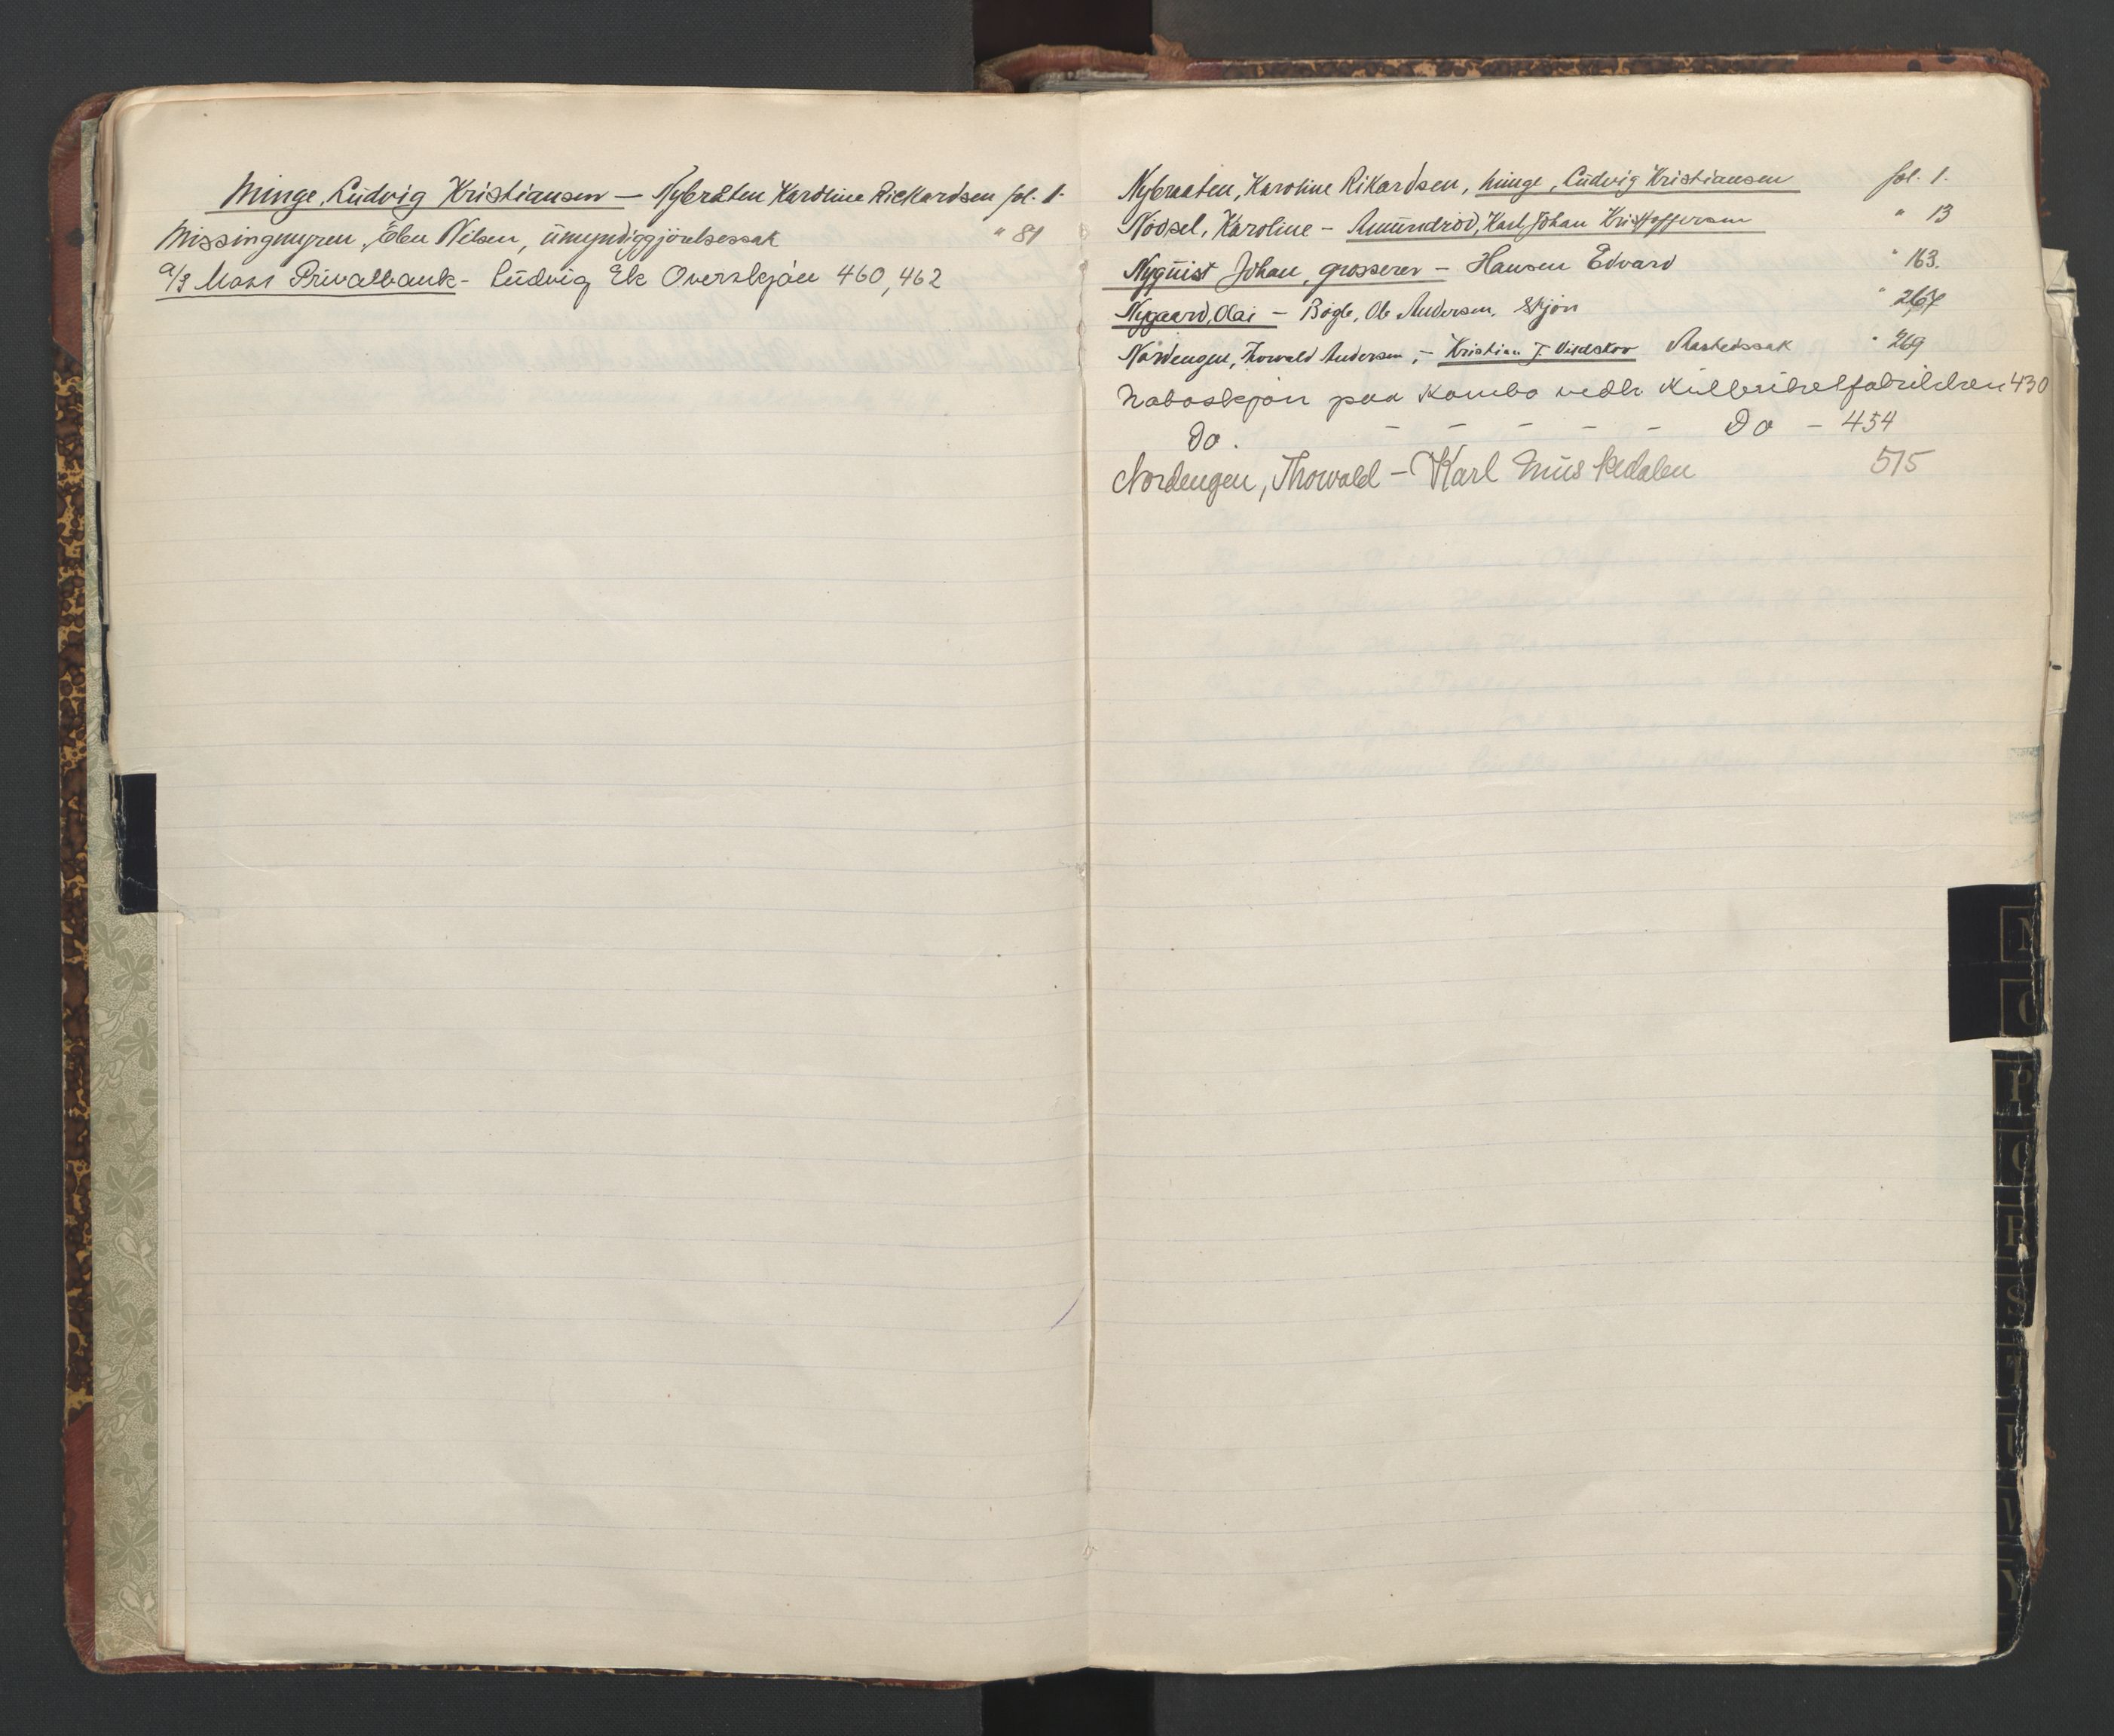 Minge, Ludvig Kristiansen — Nybråten Karoline Rickardsen fol. 1.
Missingmyren, Elen Nilsen, umyndiggjörelsessak " 81
a/s Moss Privatbank - Ludvig Ek Overskjön 460, 462
Nybraaten, Karoline Rikardsen, Minge, Ludvig Kristiansen fol. 1.
Karoline - Amundröd, Karl Johan Kristoffersen " 13
Nyquist Johan, grosserer - Hansen Edvard " 163.
Nygaard, Olai - Bögle, Ole Andersen. Skjön " 267
Nordengen, Thorvald Andersen, - Kristian J. Aastedssak " 269
Naboskjön paa Kambo vedk 430
Do. - - - - - Do - 454
Nordengen, Thorvald - Karl 515
N
O
P
Q
R
S
T
U
V
Y